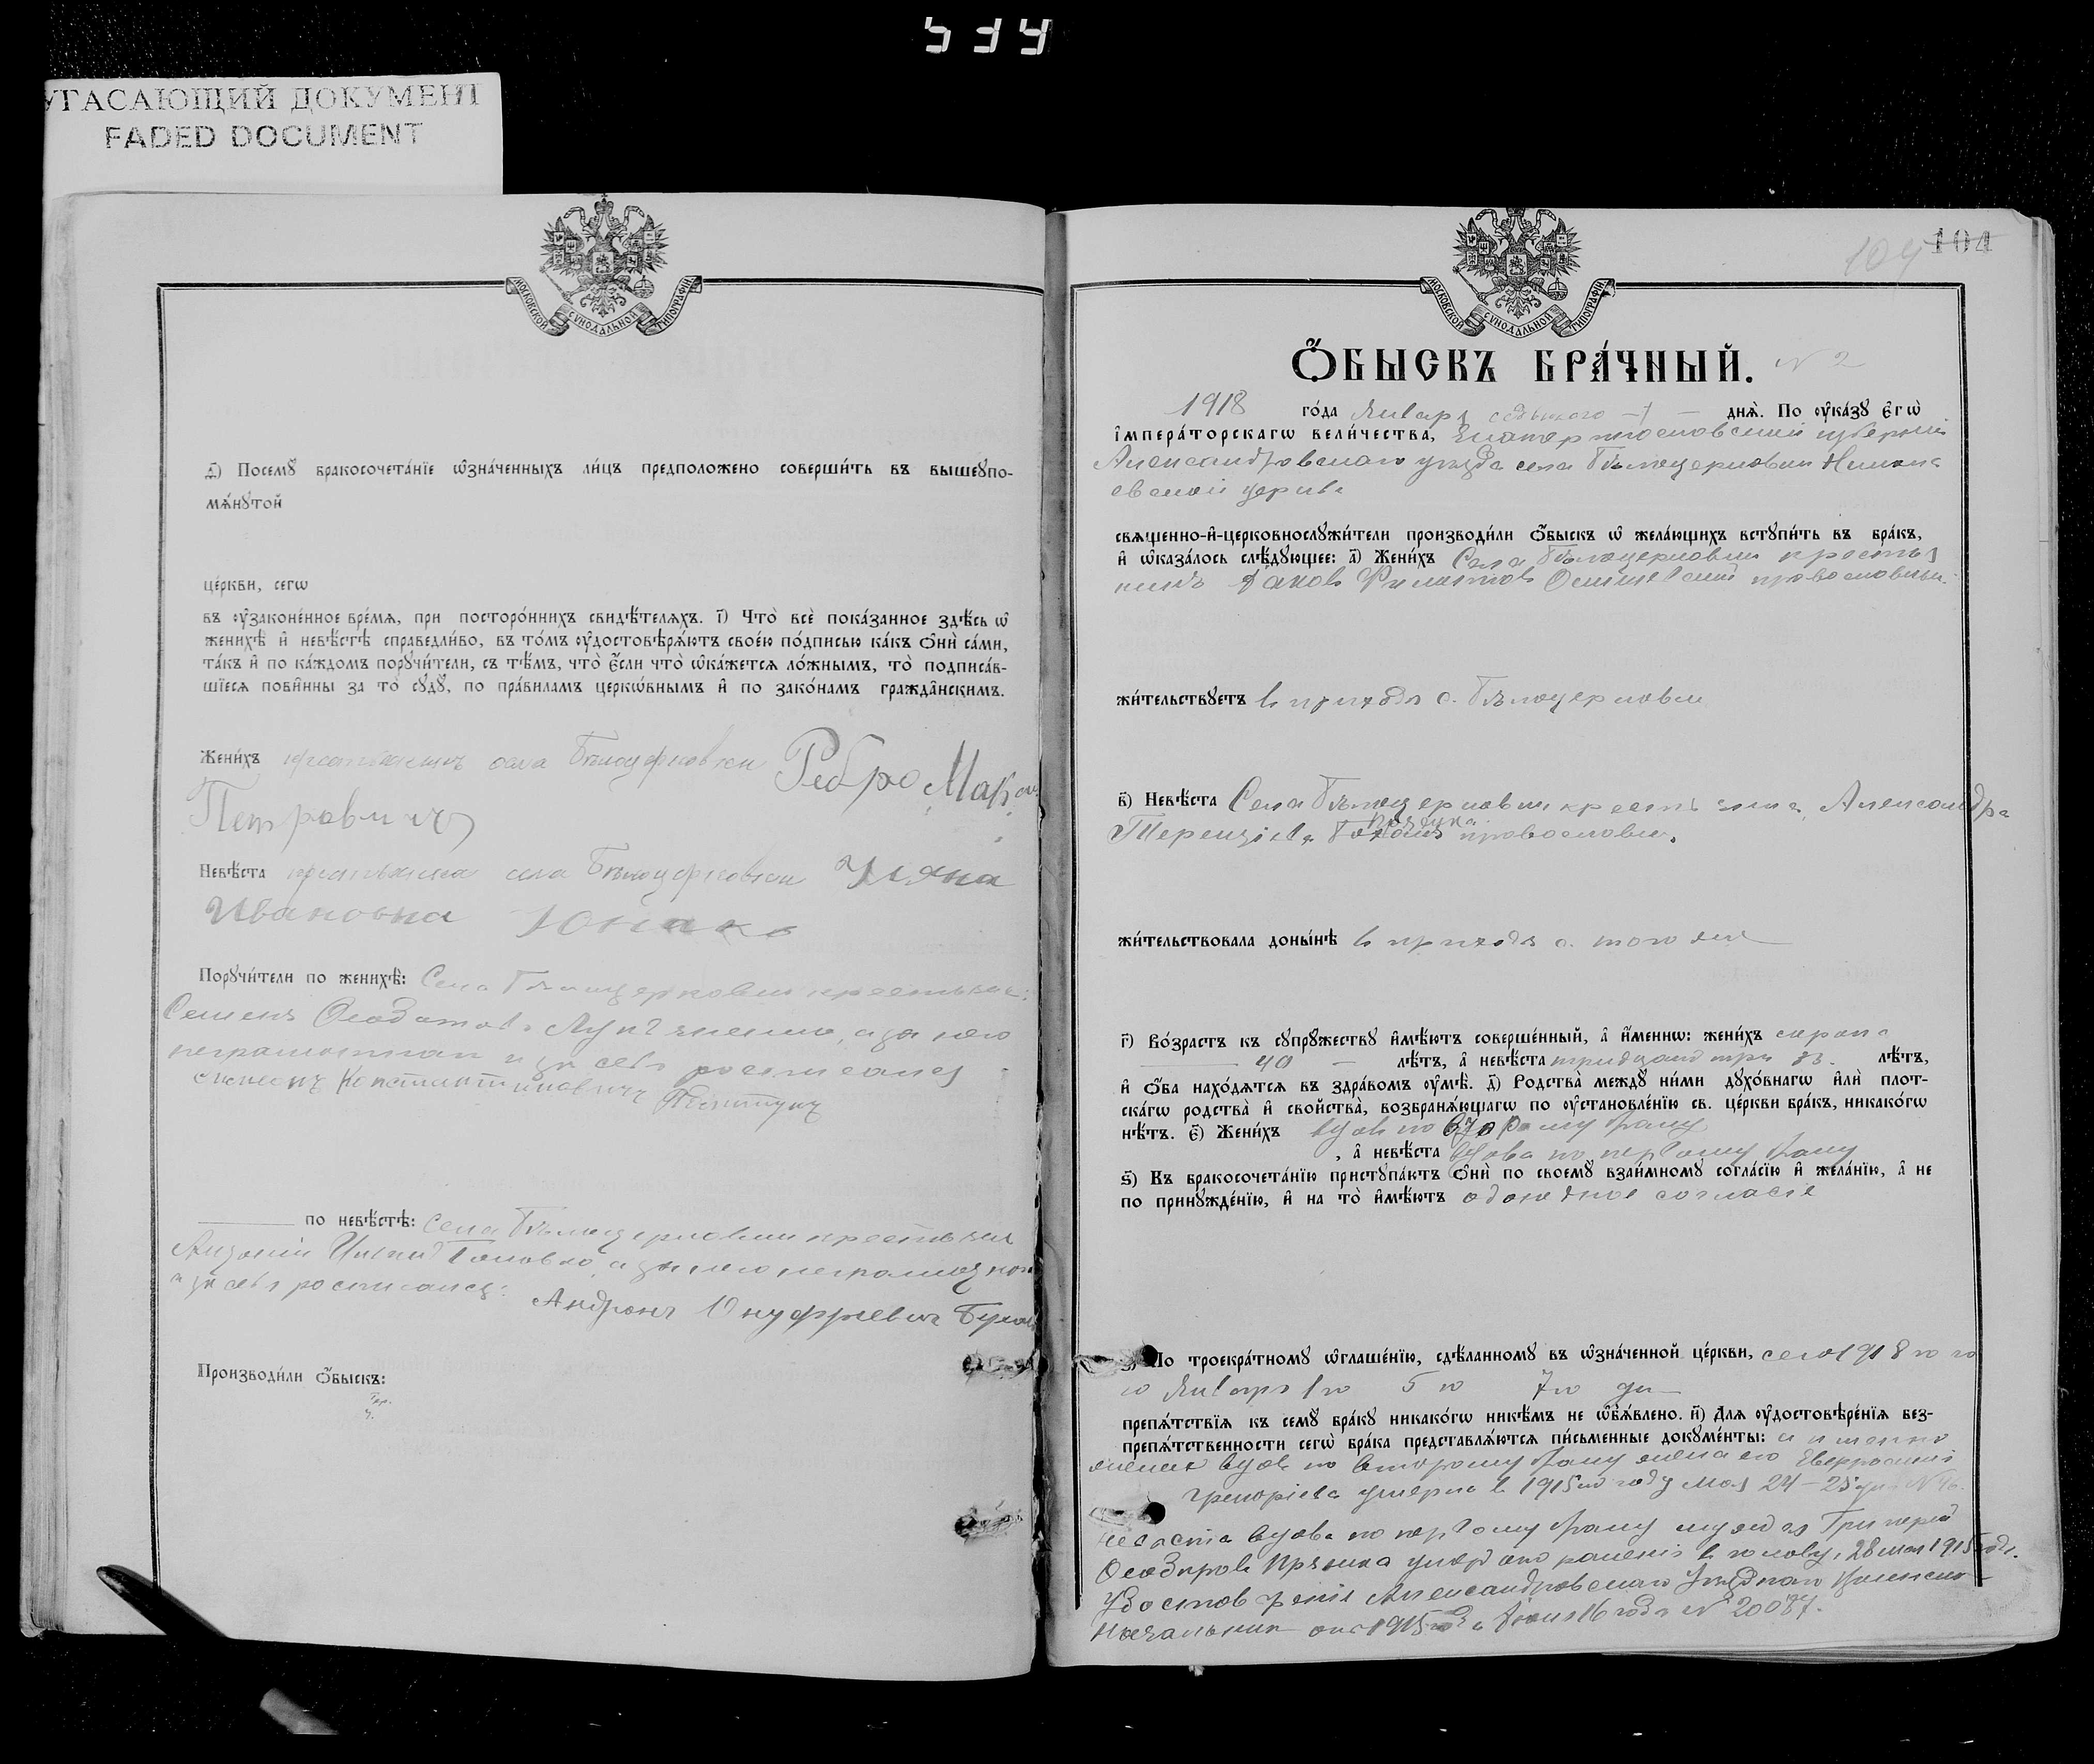 534
УГАСАЮЩИЙ ДОКУМЕНТ
FADED DOCUMENT
МОСКОВСКОЙ СѴНОДАЛЬНОЙ ТИПОГРАФІИ
д҃і) Посемꙋ̀ бракосочета́нїе ѡ҆зна́ченныхъ ли́цъ предположено соверши́ть въ вышеꙋпо-
мѧ́нꙋтой
це́ркви, сегѡ
въ ᲂу҆законе́нное вре́мѧ, при посторо́ннихъ свидѣ́телѧхъ. і҃) Что̀ всѐ пока́занное здѣ́сь ѡ҆
женихѣ̀ и҆ невѣ́стѣ справедли́во, въ то́мъ ᲂу҆достовѣрѧ́ютъ свое́ю по́дписью ка́къ ѻ҆нѝ са́ми,
та́къ и҆ по ка́ждомъ порꙋчи́тели, съ тѣ́мъ, что̀ є҆́сли что̀ ѡ҆ка́жетсѧ ло́жнымъ, то̀ подписа́в-
шїесѧ пови́нны за то̀ сꙋдꙋ̀, по пра́виламъ церко́внымъ и҆ по зако́намъ гражда́нскимъ.
Жени́хъ крестьянинъ села Бѣлоцерковки Ребро Марк
Петровичъ
Невѣ́ста крестьянка села Бѣлоцерковки Ульяна
Ивановна
Порꙋчи́тели по женихѣ̀: Села Бѣлоцерковки крестьян:
Семенъ а за него
неграмотнаго и за себя росписался
Константиновичъ
по невѣ́стѣ: Села Бѣлоцерковки крестьян
а за него неграмотнаго
и за себя росписался: Андронъ Онуфріевичъ
Производи́ли ѻ҆́быскъ:
МОСКОВСКОЙ СѴНОДАЛЬНОЙ ТИПОГРАФІИ
104 104
Ѻ҆́БЫСКЪ БРА́ЧНЫЙ. N 2
1918 го́да Января седьмого – 7 – днѧ̀. По ᲂу҆ка́зꙋ є҆гѡ̀
і҆мпера́торскагѡ вели́чества, Екатеринославской губерніи
Александровскаго уѣзда села Бѣлоцерковки Никола
евской церкви
свѧщенно-и҆-церковнослꙋжи́тели производи́ли ѻ҆́быскъ ѡ҆ жела́ющихъ встꙋпи́ть въ бра́къ,
и҆ ѡ҆каза́лось слѣ́дꙋющее: а҃) Жени́хъ Села Бѣлоцерковки крестья
нинъ Яковъ Филиповъ православный.
жи́тельствꙋетъ въ приходѣ с. Бѣлоцерковки
в҃) Невѣ́ста Села Бѣлоцерковки крестьянка Александра
Терентіева православн.
жи́тельствовала доны́нѣ въ приходѣ с. того же
г҃) Во́зрастъ къ сꙋпрꙋ́жествꙋ и҆мѣ́ютъ соверше́нный, а҆ и҆́меннѡ: жени́хъ сорокъ
– 40 – лѣ́тъ, а҆ невѣ́ста тридцать три 33. лѣ́тъ,
и҆ ѻ҆́ба нахо́дѧтсѧ въ здра́вомъ ᲂу҆мѣ̀. д҃) Родства̀ междꙋ ни́ми дꙋхо́внагѡ и҆лѝ плот-
ска́гѡ родства̀ и҆ свойства̀, возбранѧ́ющагѡ по ᲂу҆становле́нїю св. це́ркви бра́къ, никако́гѡ
нѣ́тъ. є҃) Жени́хъ вдовъ по второму браку
, а҆ невѣ́ста вдова по первому браку
ѕ҃) Къ бракосочета́нїю пристꙋпа́ютъ ѻ҆нѝ по своемꙋ̀ взаи́мномꙋ согла́сїю и҆ жела́нїю, а҆ не
по принꙋжде́нїю, и҆ на то̀ и҆мѣ́ютъ обоюдное согласіе
з҃) По троекра́тномꙋ ѡ҆глаше́нїю, сдѣ́ланномꙋ въ ѡ҆зна́ченной це́ркви, сего 1918 го го
го Января 1 го 5 го 7 го дн
препѧ́тствїѧ къ семꙋ̀ бра́кꙋ никако́гѡ никѣ́мъ не ѡ҆б̾ѧ́влено. и҃) Длѧ ᲂу҆достовѣре́нїѧ без-
препѧ́тственности сегѡ̀ бра́ка представлѧ́ютсѧ пи́сьменные докꙋме́нты: а именно
женихъ вдовъ по второму браку жена его Евфросинія
Григоріева умерла въ 1915 году мая 24 – 25 дня N
невѣста вдова по первому браку мужъ ея Григорій
умеръ отъ раненія въ голову, 28 мая 1915 года.
Удостовѣреніе Александровскаго Уѣзднаго Воинскаго
Начальника отъ 1915 года Іюня 16 года N 20087.